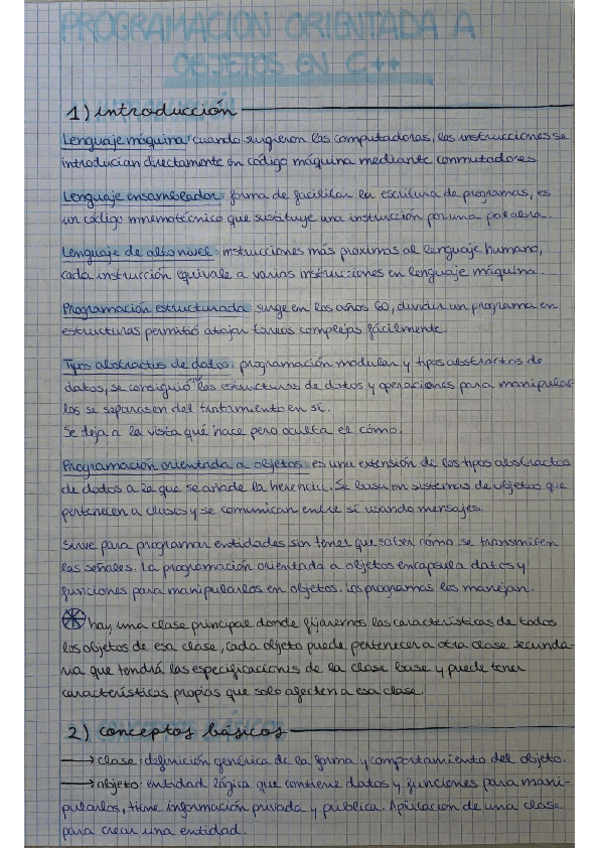 PROGRAMACIÓN ORIENTADA A
OBJETOS EN C++
1) introducción
Lenguaje máquina: cuando surgieron las computadoras, las instrucciones se
introducían directamente en código máquina mediante conmutadores
Lenguaje ensamblador: forma de facilitar la escritura de programas, es
un código mnemotécnico que sustituye una instrucción por una palabra.
Lenguaje de alto nivel: instrucciones más próximas al lenguaje humano,
cada instrucción equivale a varias instrucciones en lenguaje máquina.
Programación estructurada: surge en los años 60, dividir un programa en
estructuras permitió atajar tareas complejas fácilmente
Tipos abstractos de datos: programación modular y tipos abstractos de
datos, se consiguió que las estructuras de datos y operaciones para manipular
los se separasen del tratamiento en sí.
Se deja a la vista qué hace pero oculta el cómo.
Programación orientada a objetos: es una extensión de los tipos abstractos
de datos a la que se añade la herencia. Se basa en sistemas de objetos que
pertenecen a clases y se comunican entre sí usando mensajes.
Sirve para programar entidades sin tener que saber cómo se transmiten
las señales. La programación orientada a objetos encapsula datos y
funciones para manipularlos en objetos. Los programas los manejan.
hay una clase principal donde fijaremos las características de todos
los objetos de esa clase, cada objeto puede pertenecer a otra clase secunda-
ria que tendrá las especificaciones de la clase base y puede tener
características propias que solo afecten a esa clase.
2) conceptos básicos
→ clase: definición genérica de la forma y comportamiento del objeto.
→ objeto: entidad lógica que contiene datos y funciones para mani-
pularlos, tiene información privada y pública. Aplicación de una clase
para crear una entidad.